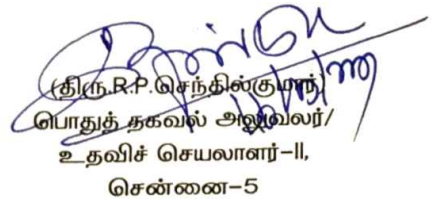 (திரு.R.P.செந்தில்குமார்)
பொதுத் தகவல் அலுவலர்/
உதவிச் செயலாளர்-II,
சென்னை-5